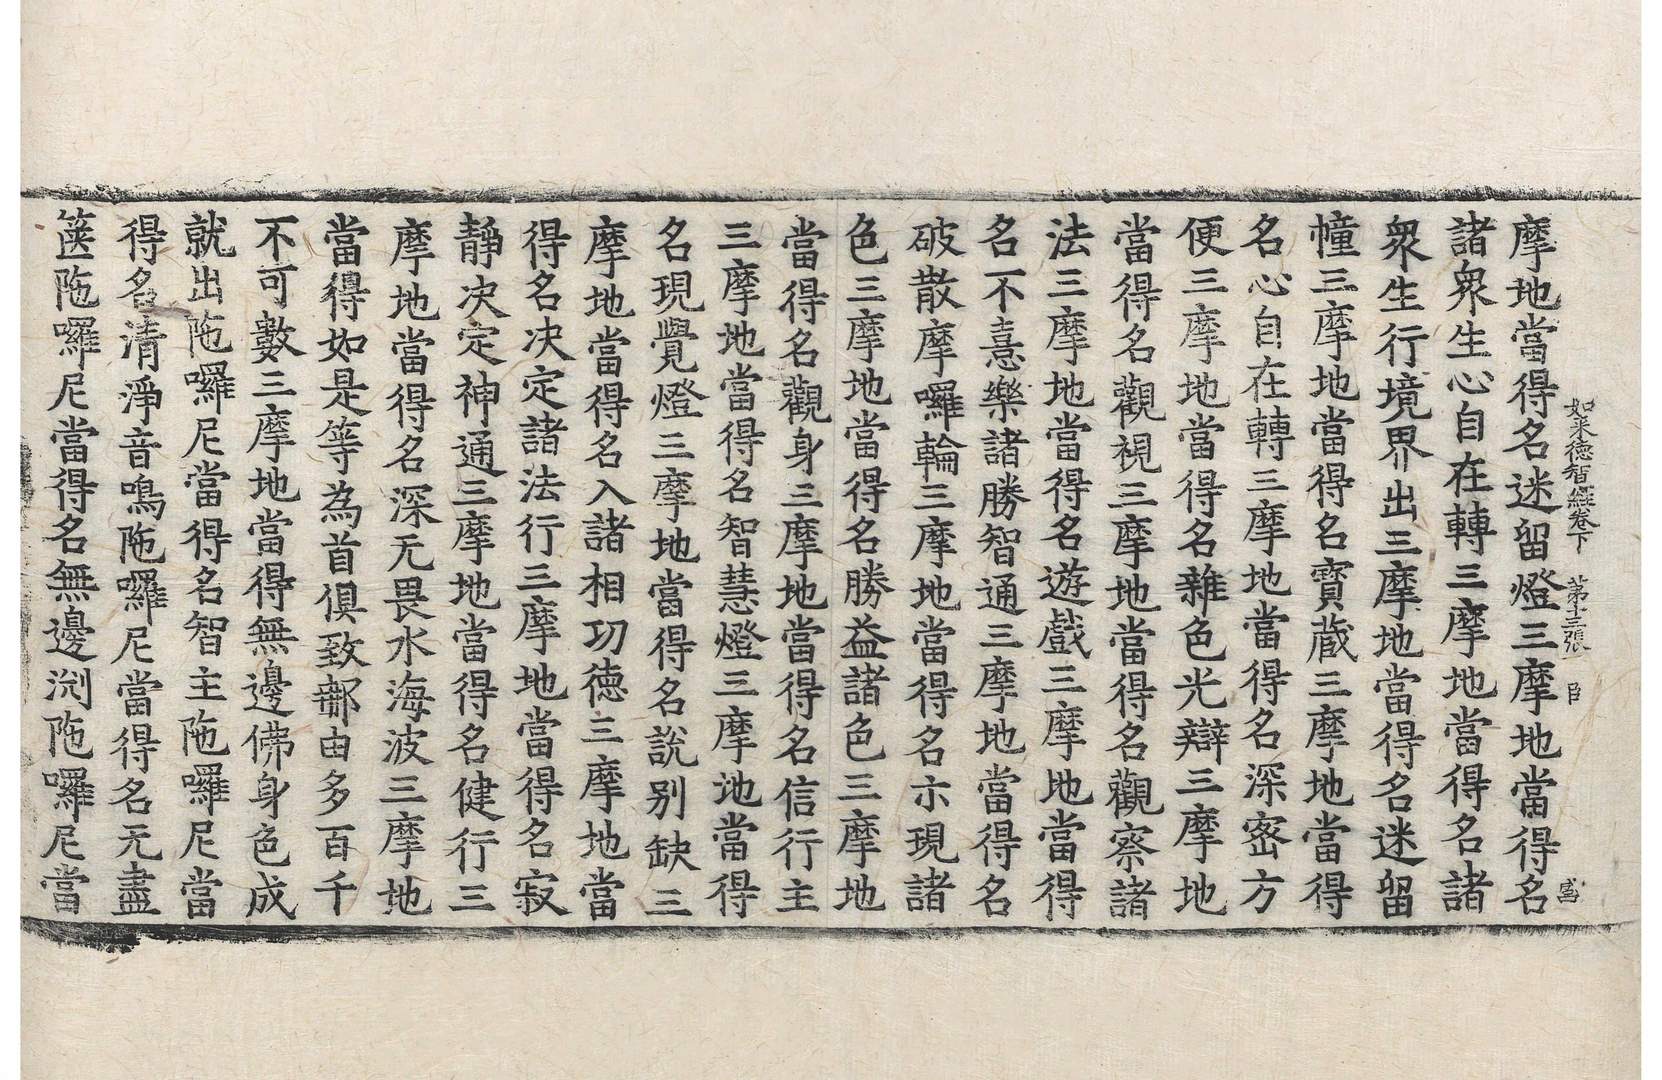 如来德智經卷下 第十三張 臣 富
摩地當得名迷留燈三摩地當得名
諸衆生心自在轉三摩地當得名諸
衆生行境界出三摩地當得名迷留
幢三摩地當得名寳蔵三摩地當得
名心自在轉三摩地當得名深密方
便三摩地當得名雜色光辯三摩地
當得名觀視三摩地當得名觀察諸
法三摩地當得名遊戲三摩地當得
名不憙樂諸勝智通三摩地當得名
破散摩囉輪三摩地當得名示現諸
色三摩地當得名勝益諸色三摩地
當得名觀身三摩地當得名信行主
三摩地當得名智慧燈三摩地當得
名現覺燈三摩地當得名說别缺三
摩地當得名入諸相功德三摩地當
得名决定諸法行三摩地當得名寂
靜决定神通三摩地當得名健行三
摩地當得名深无畏水海波三摩地
當得如是等為首俱致那由多百千
不可數三摩地當得無邊佛身色成
就出陁囉尼當得名智主陁囉尼當
得名清淨音鳴陁囉尼當得名无盡
篋陁囉尼當得名無邊渕陁囉尼當